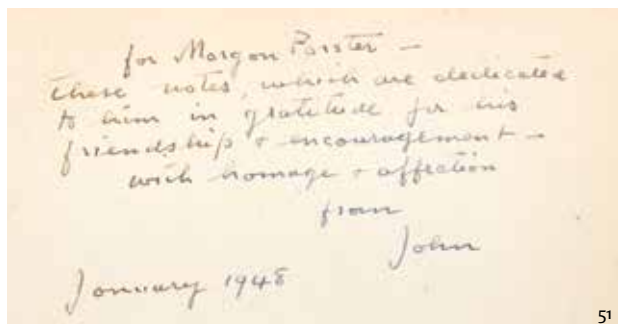 for Morgan Forster —
these notes, which are dedicated
to him in gratitude for his
friendship + encouragement —
with homage + affection
from
John
January 1948
51